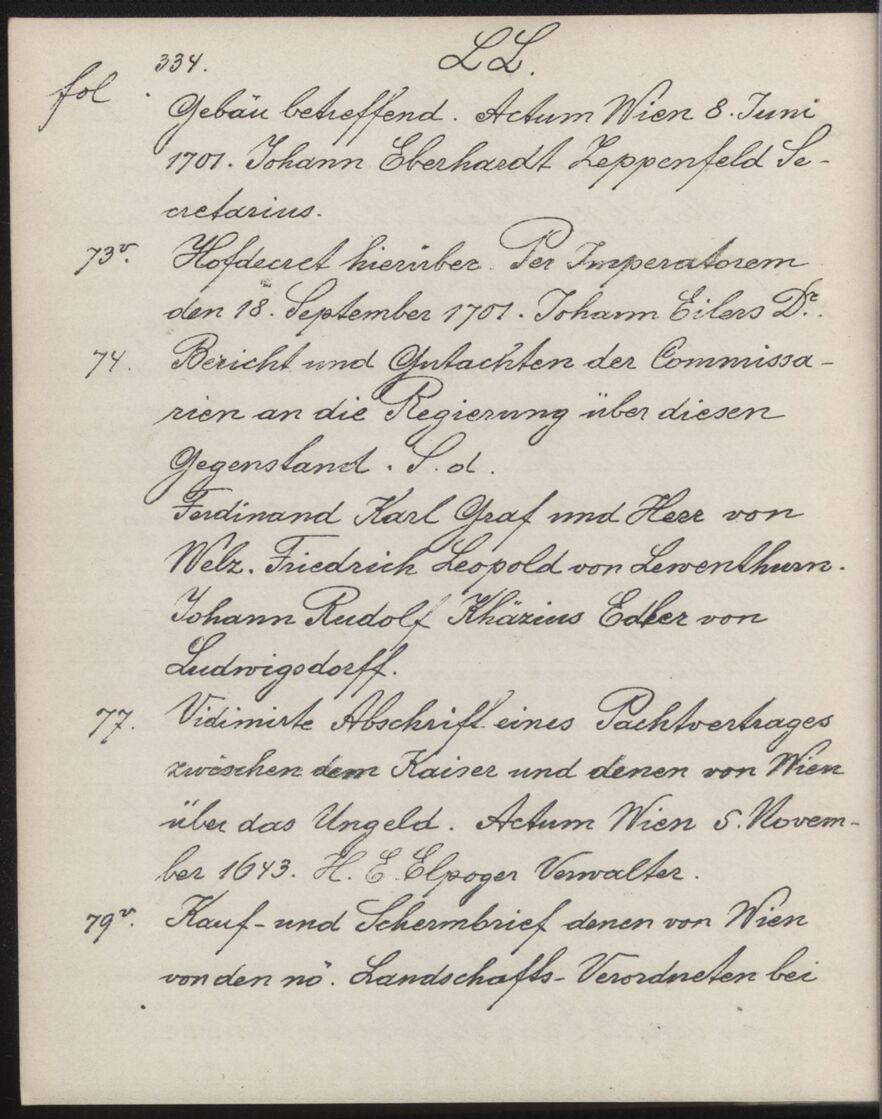 334. LL.
fol
Gebäu betreffend. Actum Wien 8. Juni
1701. Johann Eberhardt Zeppenfeld Se-
cretarius.
73v. Hofdecret hierüber. Per Imperatorem
den 18. September 1701. Johann Eilers Dr.
74. Bericht und Gutachten der Commissa-
rien an die Regierung über diesen
Gegenstand. S. d.
Ferdinand Karl Graf und Herr von
Welz. Friedrich Leopold von Lewenthurn.
Johann Rudolf Khäzius Edler von
Ludwigsdorff.
77. Vidimirte Abschrift eines Pachtvertrages
zwischen dem Kaiser und denen von Wien
über das Ungeld. Actum Wien 5. Novem-
ber 1643. H. E. Elpoger Verwalter.
79v. Kauf- und Schermbrief denen von Wien
von den nö. Landschafts-Verordneten bei